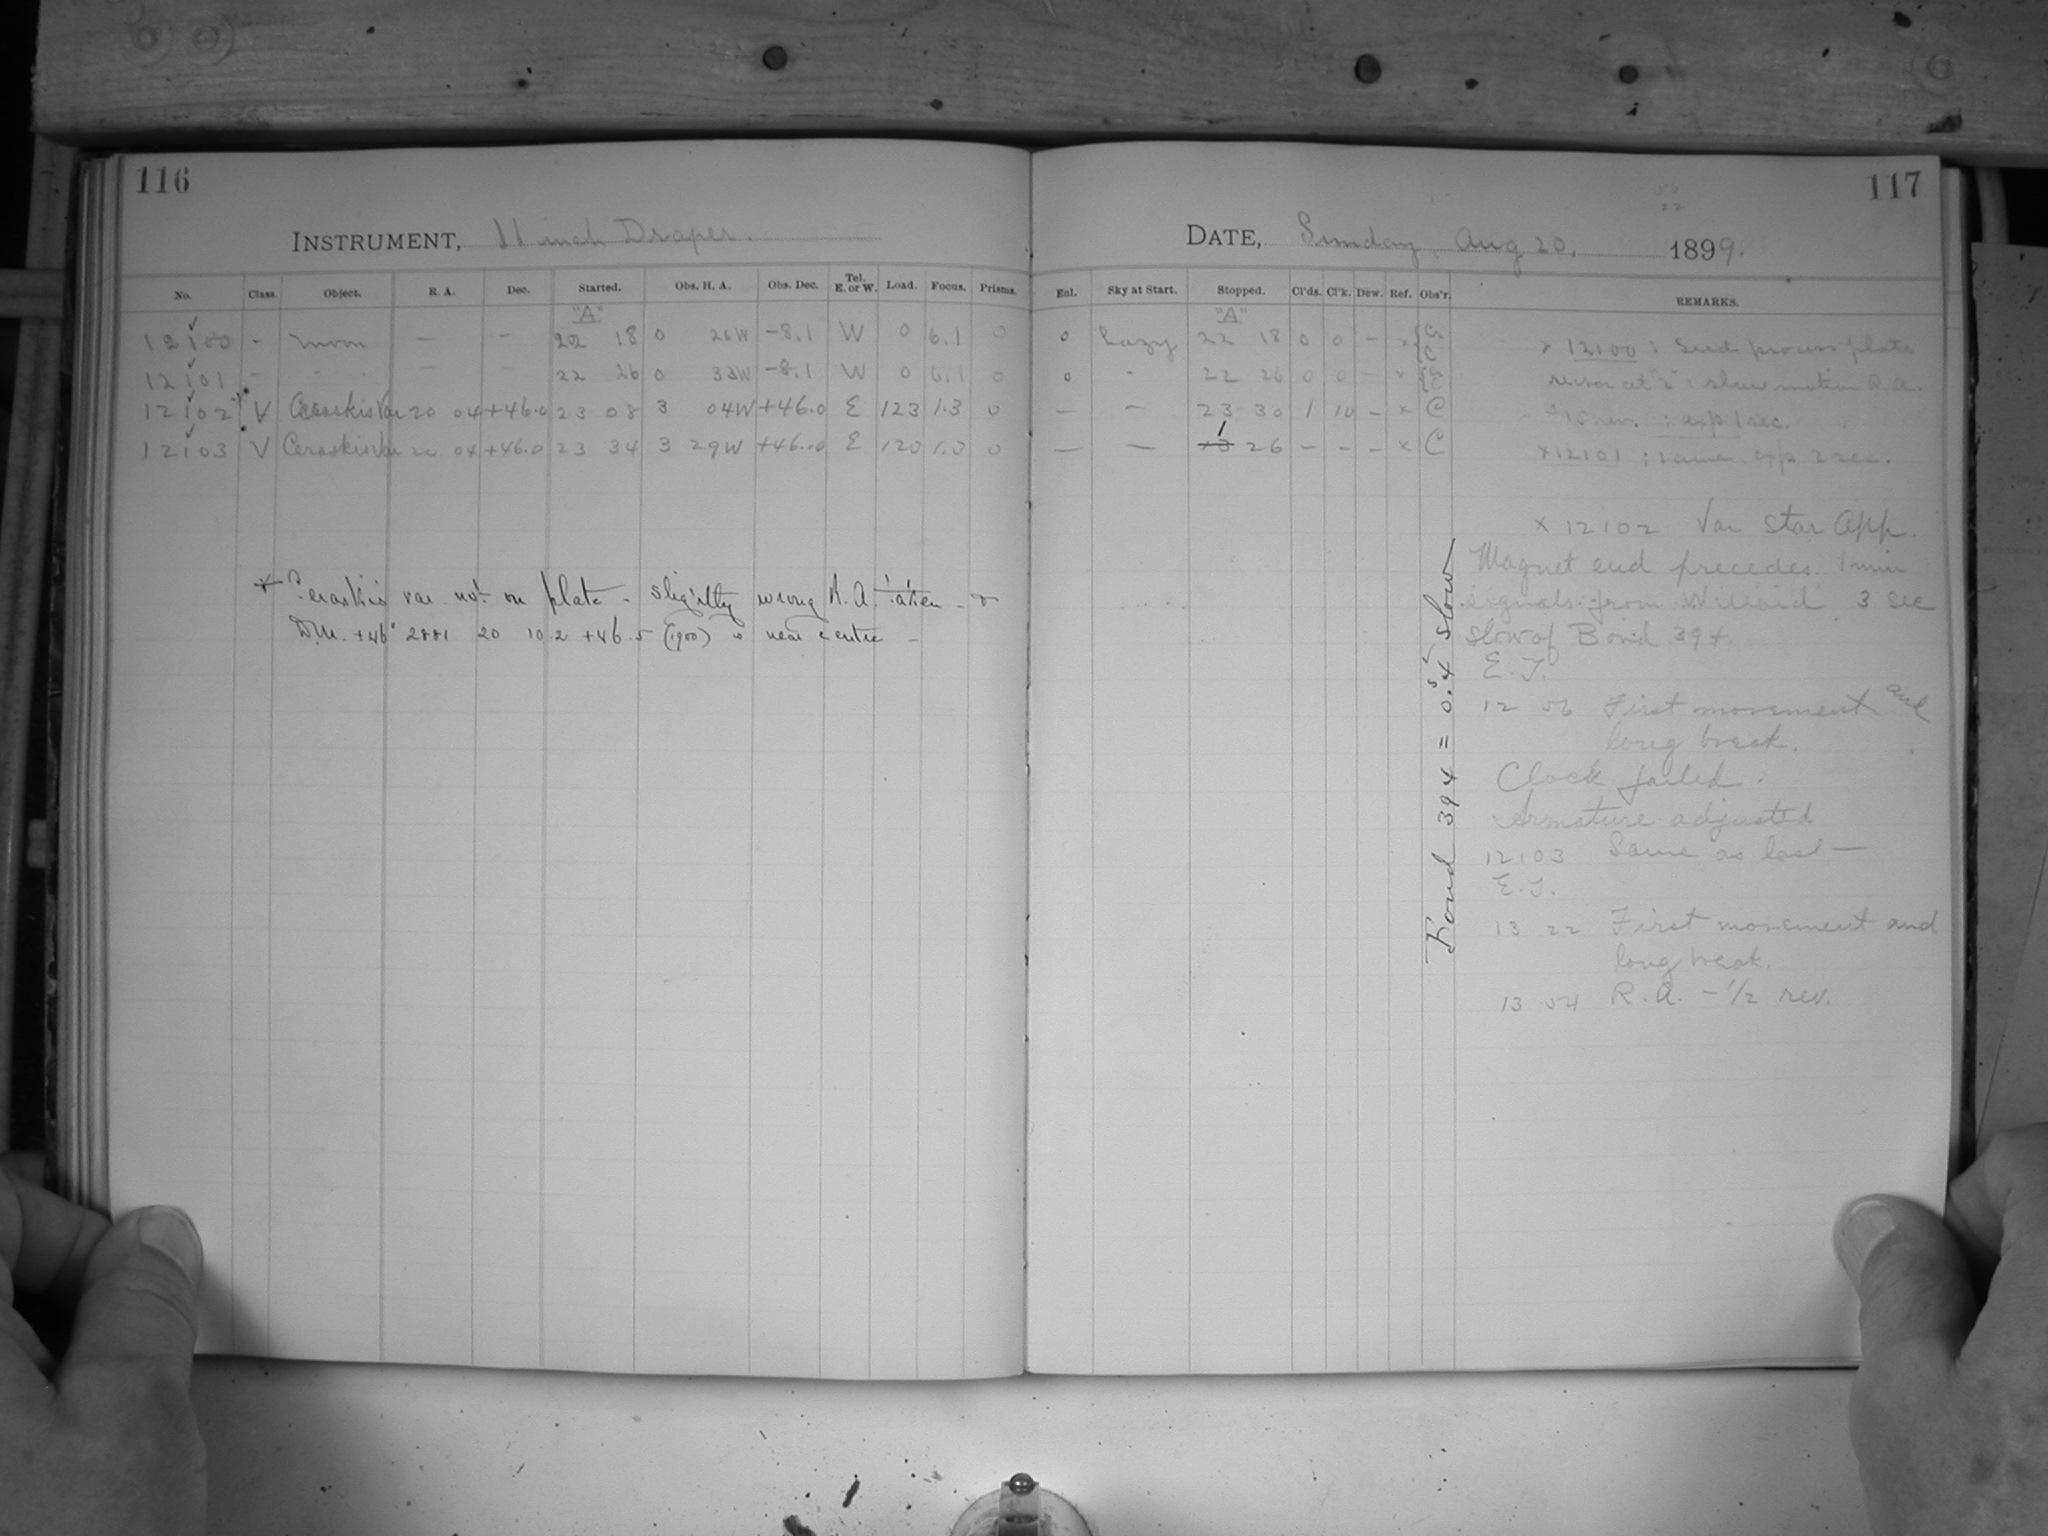 116
INSTRUMENT, 11 inch Draper.
No. Class. Object. R. A. Dec. Started. Obs. H. A. Obs. Dec. Tel. E. or W. Load. Focus. Prisms.
"A"
12100 - moon — — 22 18 0 26W -8.1 W 0 6.1 0
12101 - — — 22 26 0 33W -8.1 W 0 6.1 0
12102 V Ceraskis Var 20 04 +46.0 23 08 3 04W +46.0 E 123 1.3 0
12103 V Ceraskis Var 20 04 +46.0 23 34 3 29W +46.0 E 120 1.3 0
* Ceraskis var. not on plate - slightly wrong R. A. taken -
D.M. +46° 2881 20 10.2 +46.5 (1900) is near centre -
117
56
22
DATE, Sunday, Aug 20, 1899.
Enl. Sky at Start. Stopped. Cl'ds. Cl'k. Dew. Ref. Obs'r. REMARKS.
"A"
0 Hazy 22 18 0 0 - x
0 " 22 26 0 0 - x
— — 23 30 1 10 - x C
— — 13 1 26 - - - x C
x 12100 : Seed process plate
rever at "2" : slow motion R.A.
15 rev. : exp 1 sec.
x 12101 : same exp 2 sec.
x 12102 Var Star App.
Magnet end precedes. 1 min
signals from Willard 3 sec
slow of Bond 394.
E. T.
12 56 First movement and
long break.
Clock failed.
Armature adjusted
12103 Same as last —
E. T.
13 22 First movement and
long break.
13 54 R. A. - 1/2 rev.
Bond 394 = 0.4s slow